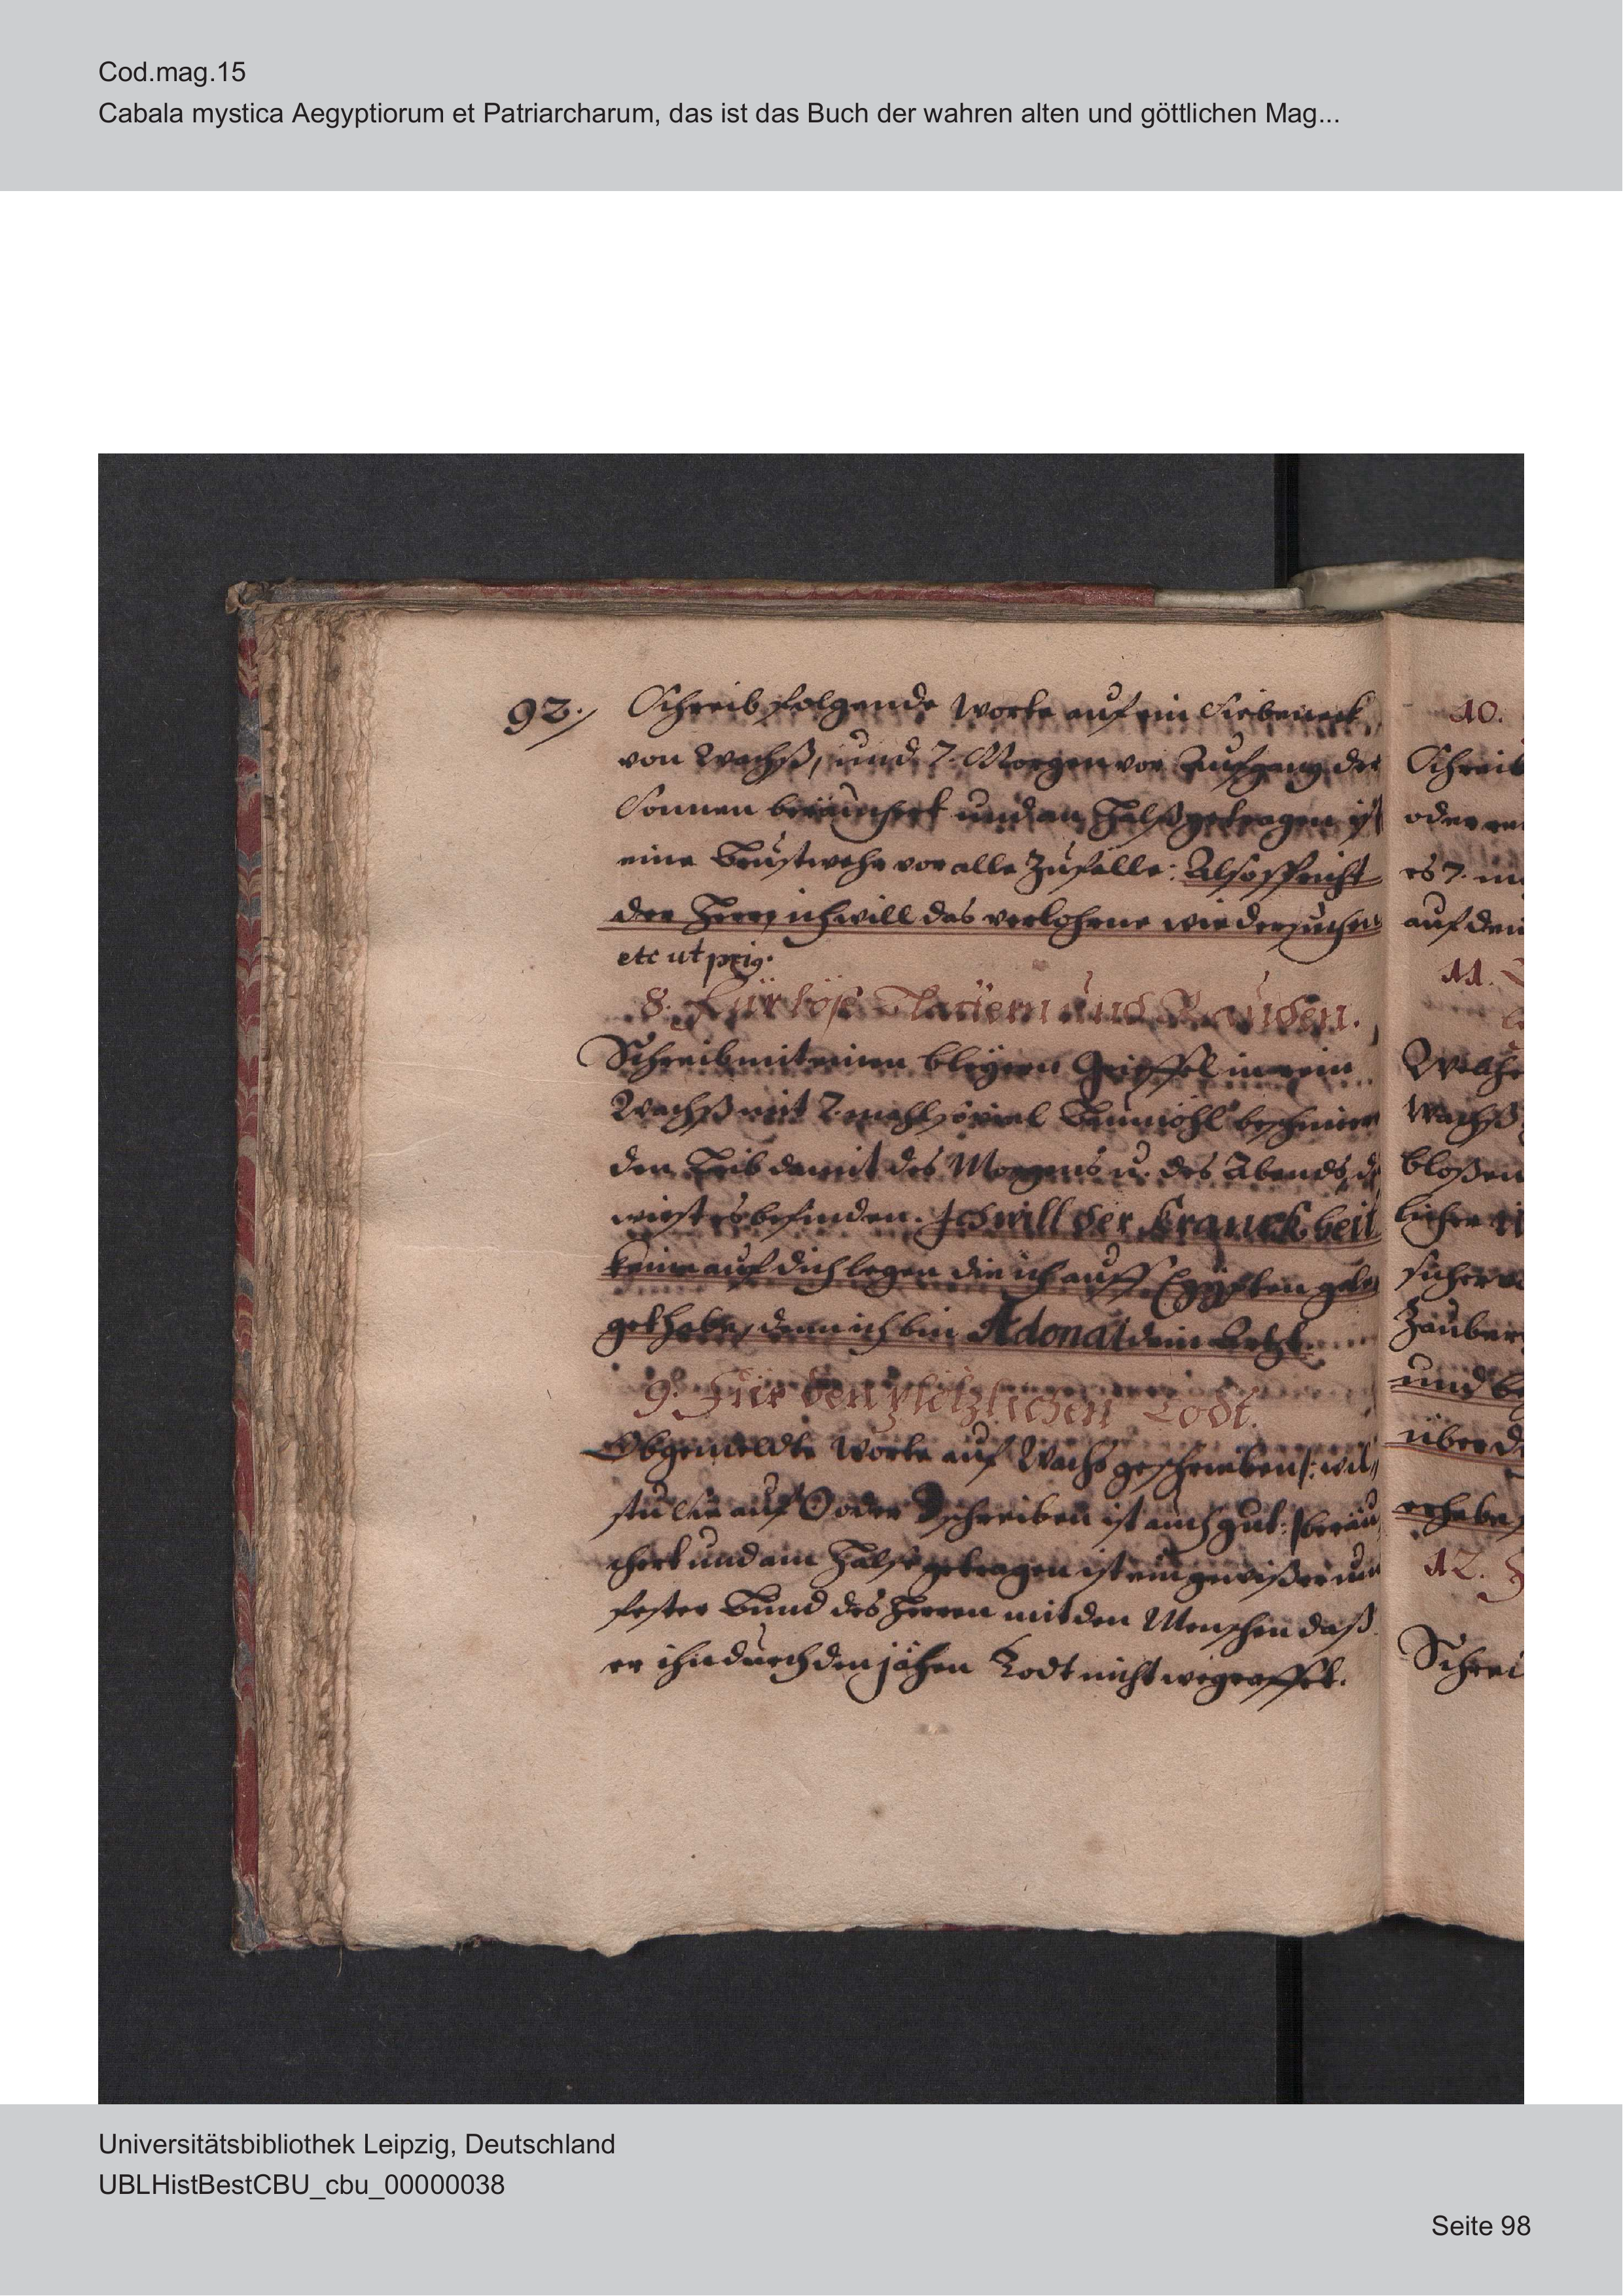 Cod.mag.15
Cabala mystica Aegyptiorum et Patriarcharum, das ist das Buch der wahren alten und göttlichen Mag...
92. Schreib folgende Worte auf ein Siebeneck
von Wachß, und 7. Morgen vor Aufgang der
Sonnen beräuchert und an Halß getragen ist
eine Brustwehr vor alle Zufälle: Also spricht
der Herr, ich will das verlohrne wieder suchen
etc ut prig.
8. Für böse Blattern und Rauden.
Schreib mit einen bleyern Griffel in rein
Wachß mit 7. mahl so viel Baumöhl beschmiere
den Leib damit des Morgens u. des Abends, du
wirst es befinden. Ich will der Kranckheit
keine auf dich legen die ich auff Egypten gele
get habe, denn ich bin Adonai dein Artzt.
9. Für den plötzlichen Todt.
Obgemeldte Worte auf Wachs geschrieben /: wil
stu Sie auf ☉ oder ☽ schreiben ist auch gut :/ beräu
chert und am Halse getragen ist ein gewißer und
fester Bund des Herren mit den Menschen daß
er ihn durch den jähen Todt nicht wegrafft.
10.
Schreib
oder
es 7.
auf den
11.
Wachß
bloßen
licher
sicher
Zauber
und
über
erhebe
12.
Schrei
Universitätsbibliothek Leipzig, Deutschland
UBLHistBestCBU_cbu_00000038
Seite 98